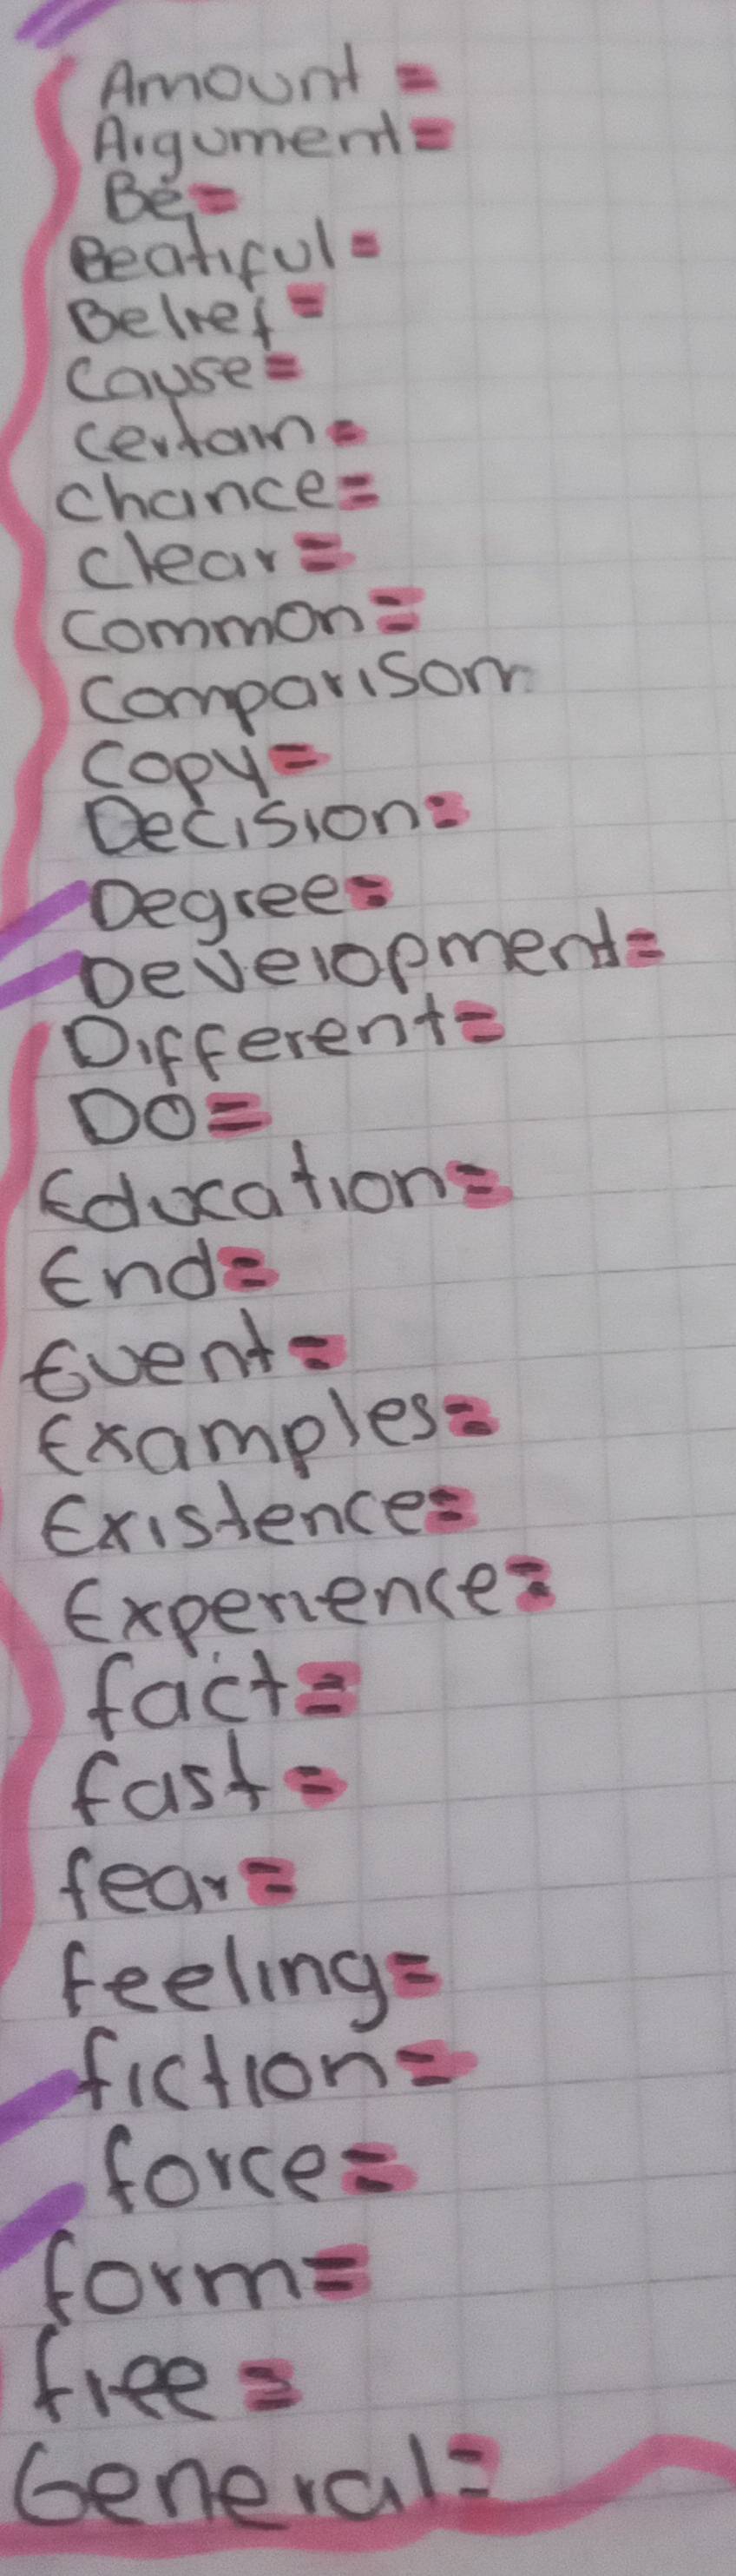 Amount =
Argument =
Be =
Beatiful =
Belief =
Cause =
Certain =
Chance =
Clear =
Common =
Comparison
Copy =
Decision =
Degree =
Development =
Different =
DO =
Education =
End =
Event =
Examples =
Existence =
Experience =
fact =
fast =
fear =
feeling =
fiction =
force =
form =
free =
General =